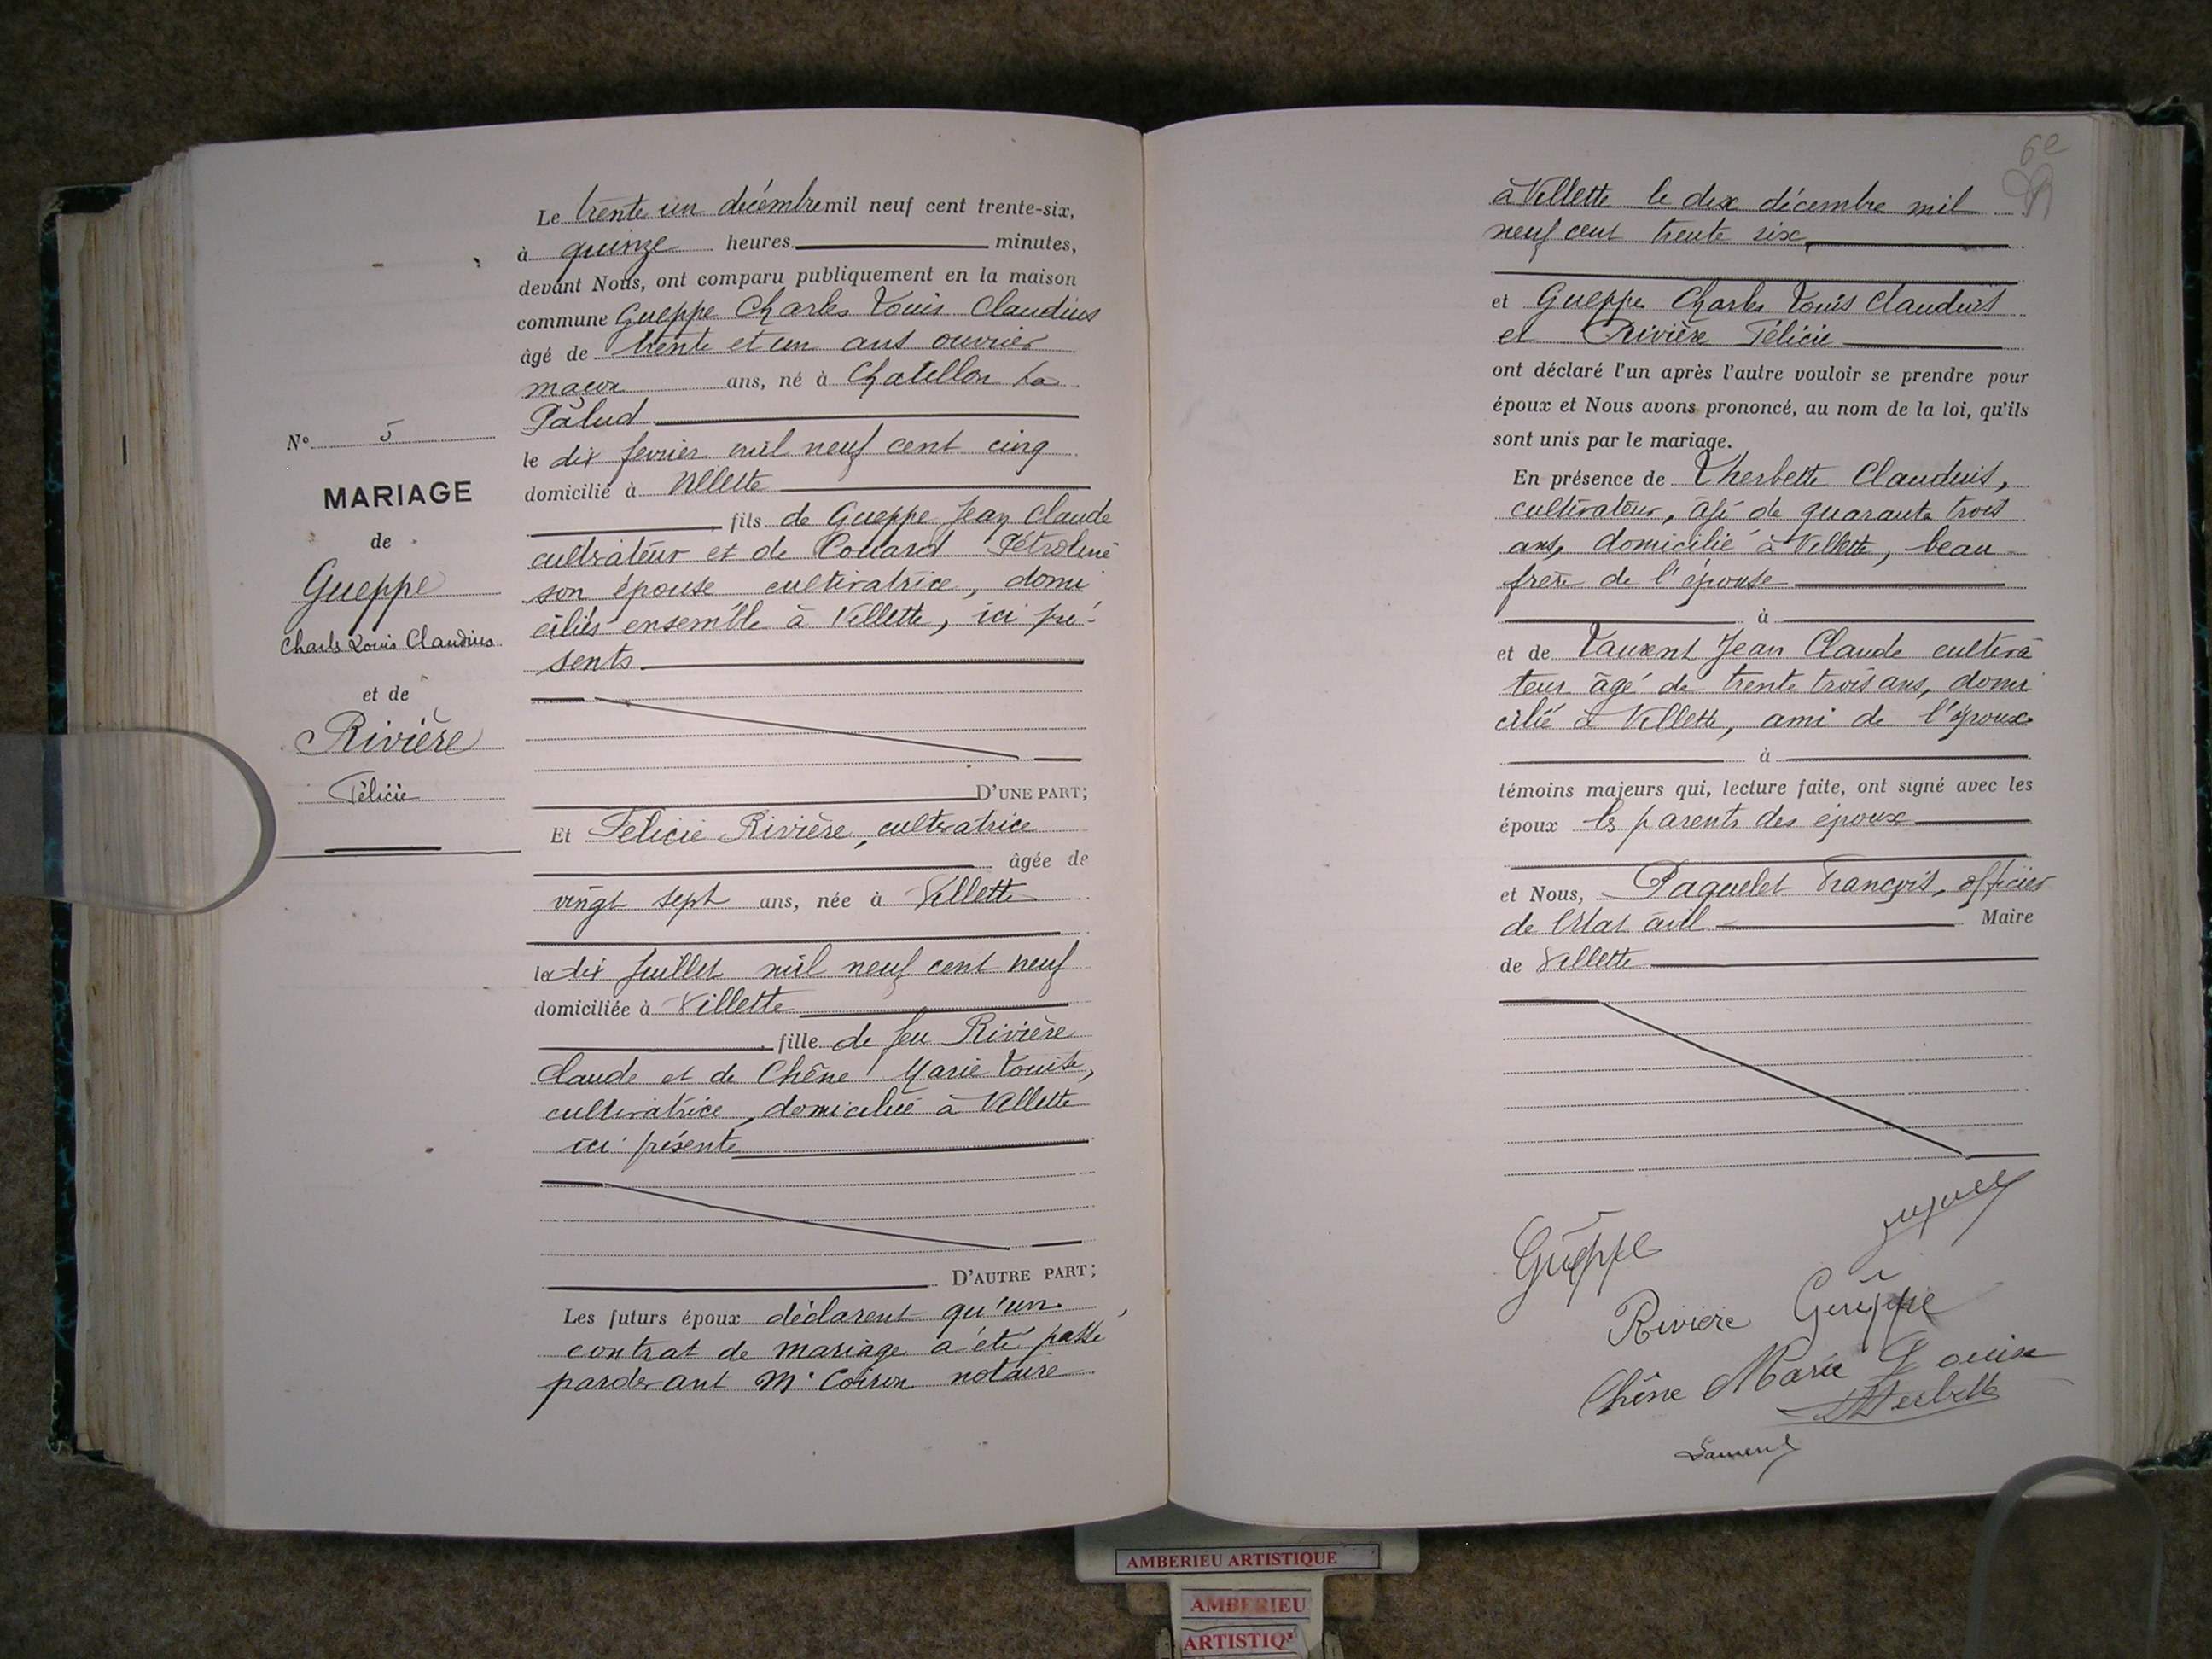 N° 5
MARIAGE
de
Gueppe
Charles Louis Claudius
et de
Rivière
Félicie
Le trente un décembre mil neuf cent trente-six,
à quinze heures minutes,
devant Nous, ont comparu publiquement en la maison
commune Gueppe Charles Louis Claudius
âgé de trente et un ans ouvrier
maçon ans, né à Chatillon La
Palud
le dix fevrier mil neuf cent cinq
domicilié à Villette
fils de Gueppe Jean Claude
cultivateur et de Couard Pétroline
son épouse cultivatrice, domi
ciliés ensemble à Villette, ici pré-
sents
D'UNE PART;
Et Félicie Rivière, cultivatrice
âgée de
vingt sept ans, née à Villette
le dix Juillet mil neuf cent neuf
domiciliée à Villette
fille de feu Rivière
Claude et de Chêne Marie Louise,
cultivatrice, domiciliée à Villette
ici présente
D'AUTRE PART;
Les futurs époux déclarent qu'un
contrat de mariage a été passé
pardevant Me Coiron notaire
62
à Villette le dix décembre mil
neuf cent trente six,
et Gueppe Charles Louis Claudius
et Rivière Félicie
ont déclaré l'un après l'autre vouloir se prendre pour
époux et Nous avons prononcé, au nom de la loi, qu'ils
sont unis par le mariage.
En présence de Lherbette Claudius,
cultivateur, âgé de quarante trois
ans, domicilié à Villette, beau
frère de l'épouse
à
et de Laurent Jean Claude cultiva
teur âgé de trente trois ans, domi
cilié à Villette, ami de l'époux
à
témoins majeurs qui, lecture faite, ont signé avec les
époux les parents des époux
et Nous, Paquelet François, officier
de l'état civil Maire
de Villette
Guêppe
Riviere Guêppe
Chêne Marie Louise
Lherbette
Laurent
AMBERIEU ARTISTIQUE
AMBERIEU
ARTISTIQ